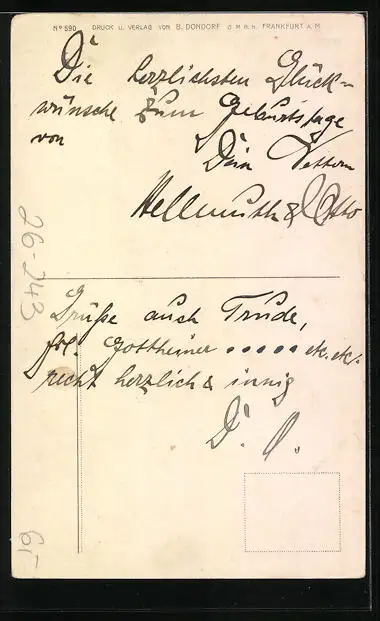 No 590 DRUCK U. VERLAG VON B. DONDORF G.M.B.H. FRANKFURT A.M
Die herzlichsten Glück-
wünsche zum Geburtstage
von Dein Vettern
Hellmuth & Otto
26-243
Grüße auch Trude,
Frl. Gottheiner ..... etc. etc.
recht herzlich & innig
D. O.